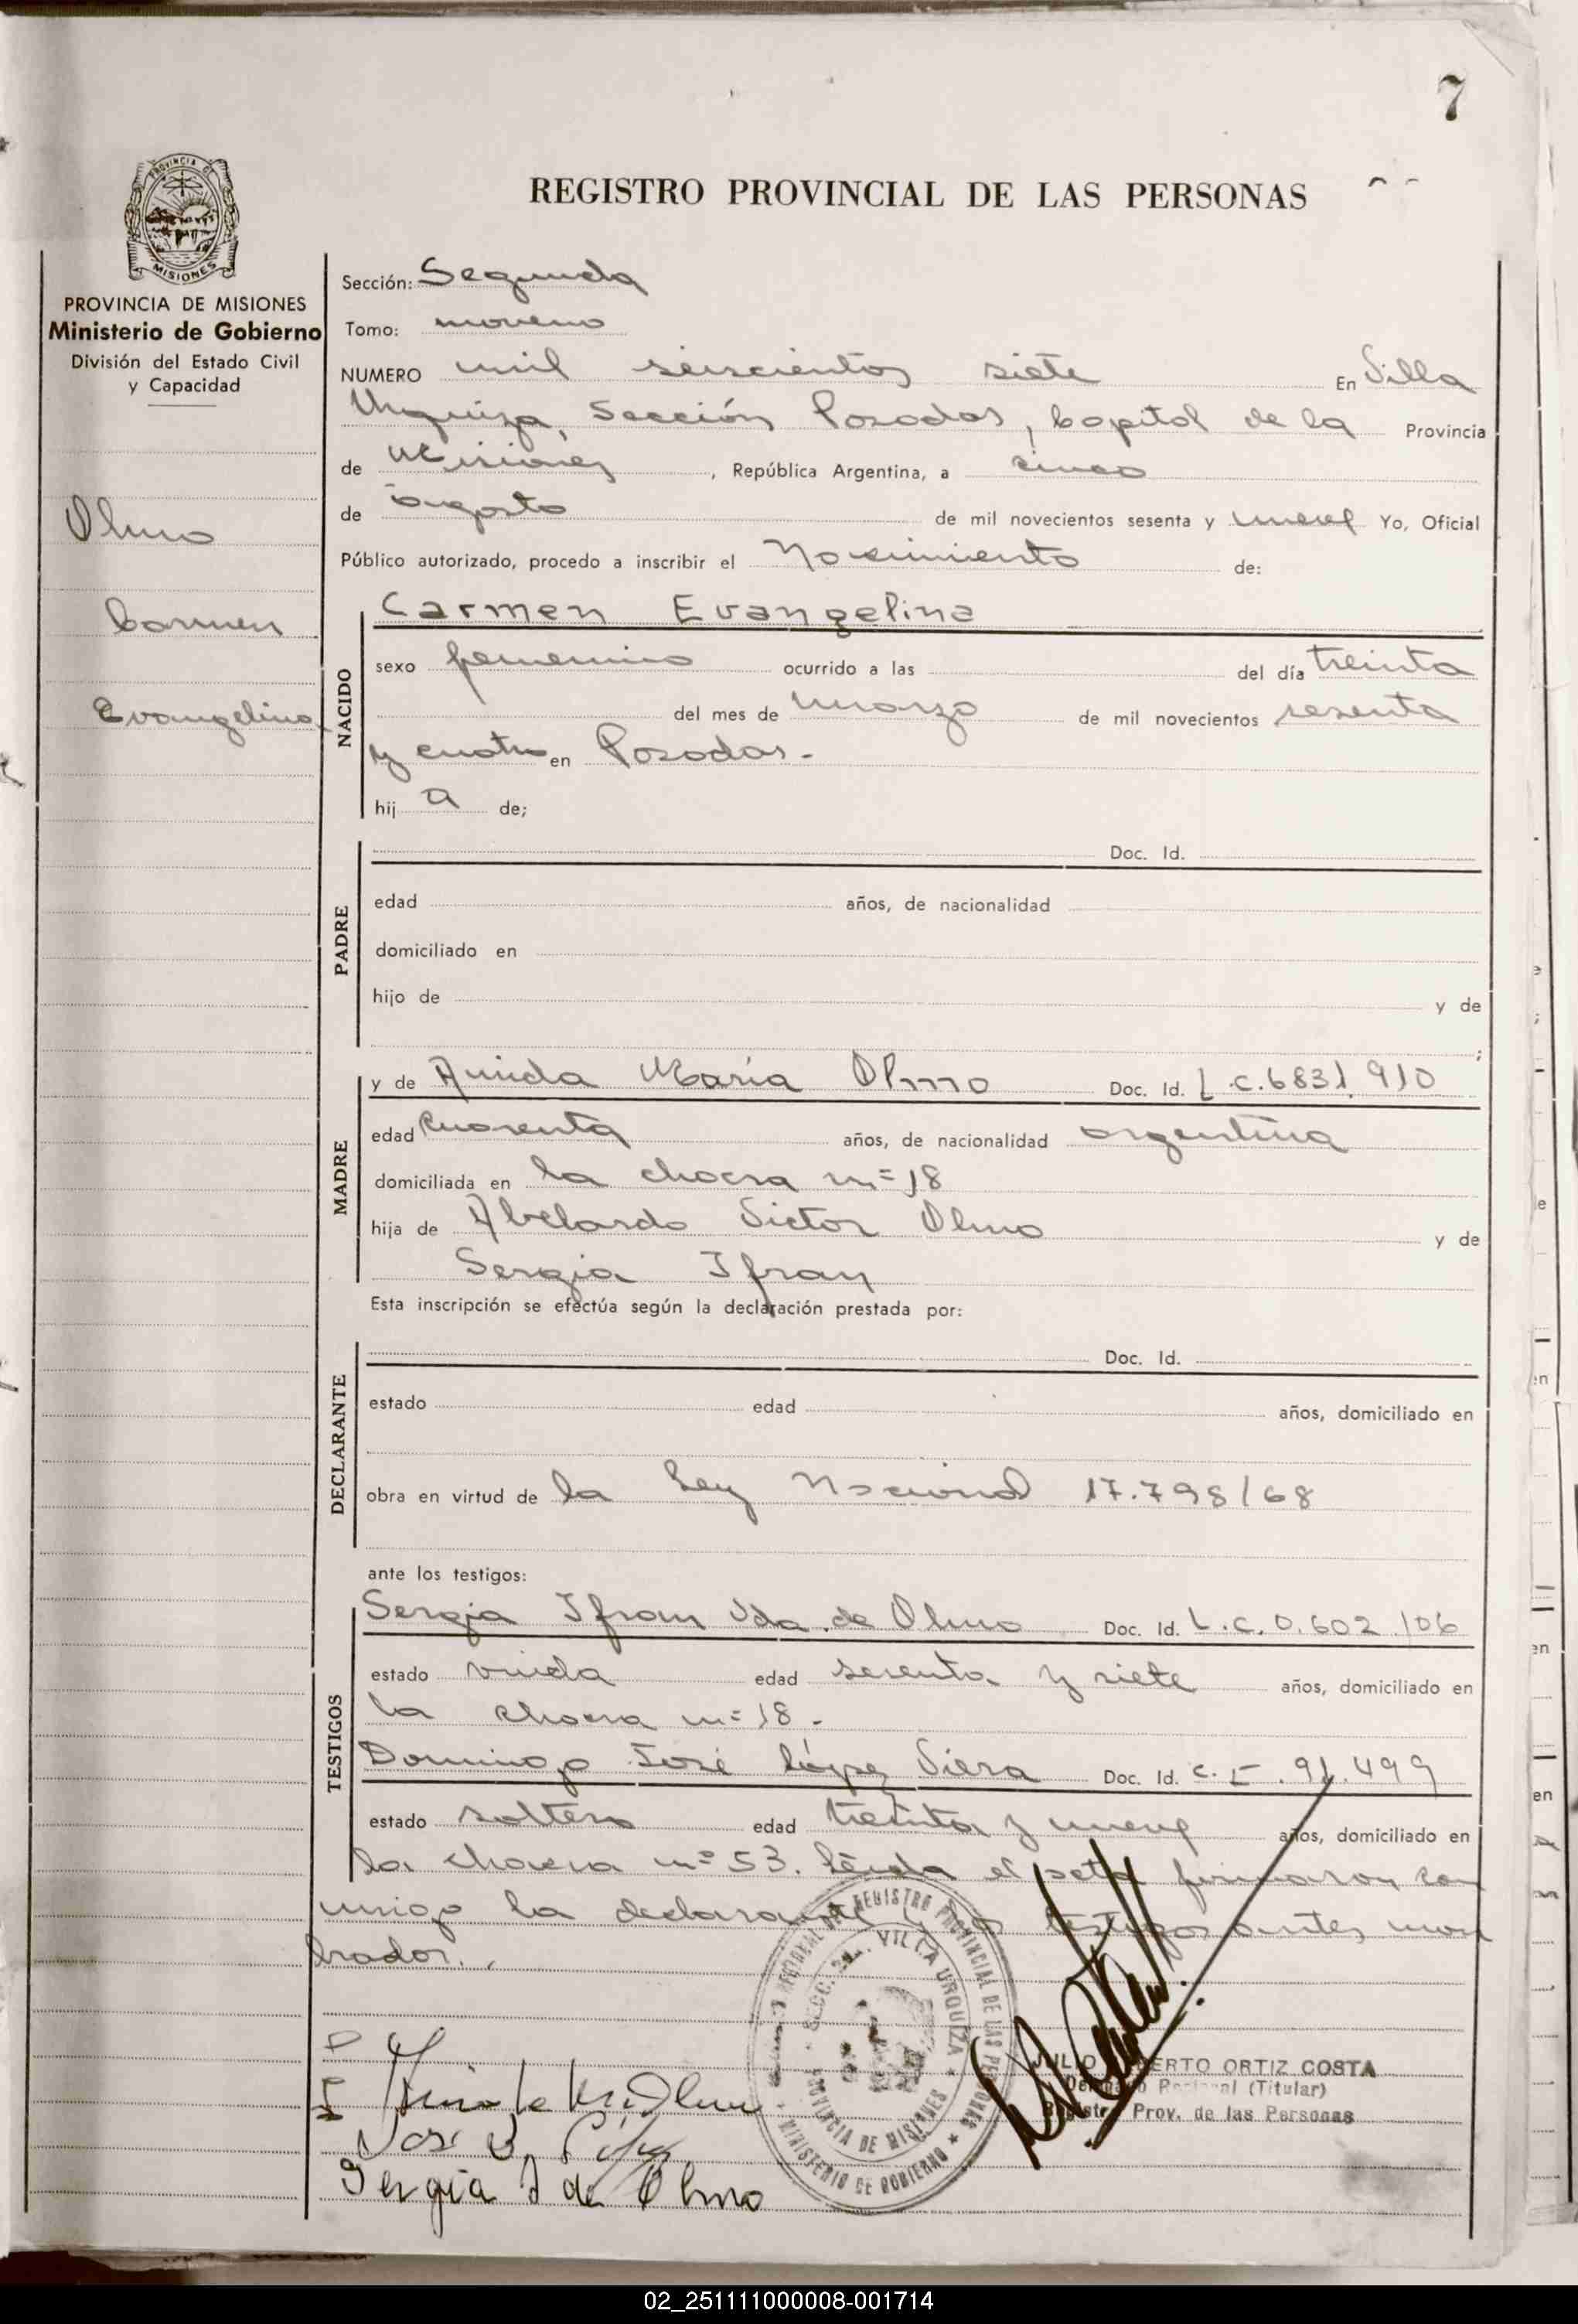 7
REGISTRO PROVINCIAL DE LAS PERSONAS
PROVINCIA DE MISIONES
Ministerio de Gobierno
División del Estado Civil
y Capacidad
Olmo
Carmen
Evangelina
Sección: Segunda
Tomo: noveno
NUMERO mil seiscientos siete En Villa
Urquiza, Sección Posadas, Capital de la Provincia
de Misiones, República Argentina, a cinco
de agosto de mil novecientos sesenta y nueve Yo, Oficial
Público autorizado, procedo a inscribir el Nacimiento de:
NACIDO
Carmen Evangelina
sexo femenino ocurrido a las del día treinta
del mes de marzo de mil novecientos sesenta
y cuatro en Posadas.-
hij a de;
PADRE
Doc. Id.
edad años, de nacionalidad
domiciliado en
hijo de y de
;
MADRE
y de María Olmo Doc. Id. L.C. 6831.910
edad cuarenta años, de nacionalidad argentina
domiciliada en la chacra nº 18
hija de Abelardo Victor Olmo y de
Sergia Ifran
Esta inscripción se efectúa según la declaración prestada por:
DECLARANTE
Doc. Id.
estado edad años, domiciliado en
obra en virtud de la Ley Nacional 17.798/68
ante los testigos:
TESTIGOS
Sergia Ifran Vda. de Olmo Doc. Id. L.C. 0.602.106
estado viuda edad y siete años, domiciliado en
la chacra nº 18.-
Domingo José López Viera Doc. Id. C.I. 91.499
estado soltero edad treinta y nueve años, domiciliado en
la chacra nº 53. Leída el acta firmaron con
migo la declarante y los testigos antes nom
brados.
REGISTRO PROVINCIAL DE LAS PERSONAS
SECC. 2a. VILLA URQUIZA
PROVINCIA DE MISIONES
MINISTERIO DE GOBIERNO
JULIO ALBERTO ORTIZ COSTA
Delegado Regional (Titular)
Registro Prov. de las Personas
Sergia I de Olmo
02_251111000008-001714